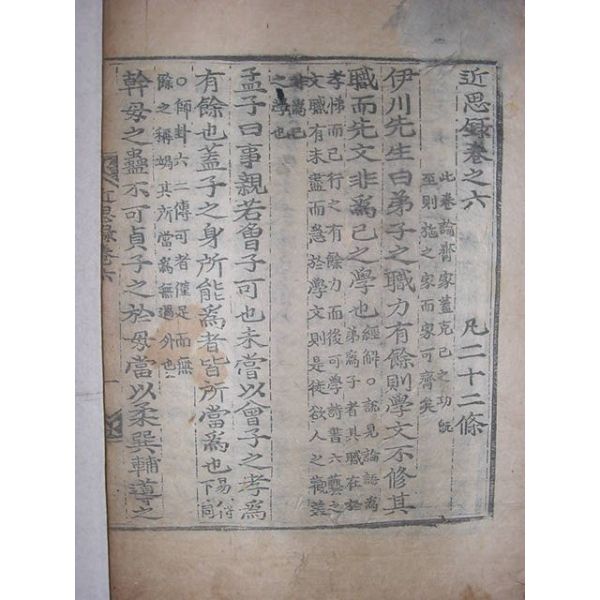 近思錄卷之六 凡二十二條
此卷論齊家蓋克己之功旣
至則施之家而家可齊矣
伊川先生曰弟子之職力有餘則學文不修其
職而先文非爲己之學也
經解○說見論語爲
弟爲子者其職在於
孝悌而已行之有餘力而後可學詩書六藝之
文職有未盡而急於學文則是徒欲人之觀美
非爲己
之學也
孟子曰事親若曾子可也未嘗以曾子之孝爲
有餘也蓋子之身所能爲者皆所當爲也
易傳
下同
○師卦六二傳可者僅足而無
餘之稱竭其所當爲無過外也
幹母之蠱不可貞子之於母當以柔巽輔導之
近思錄卷六
一